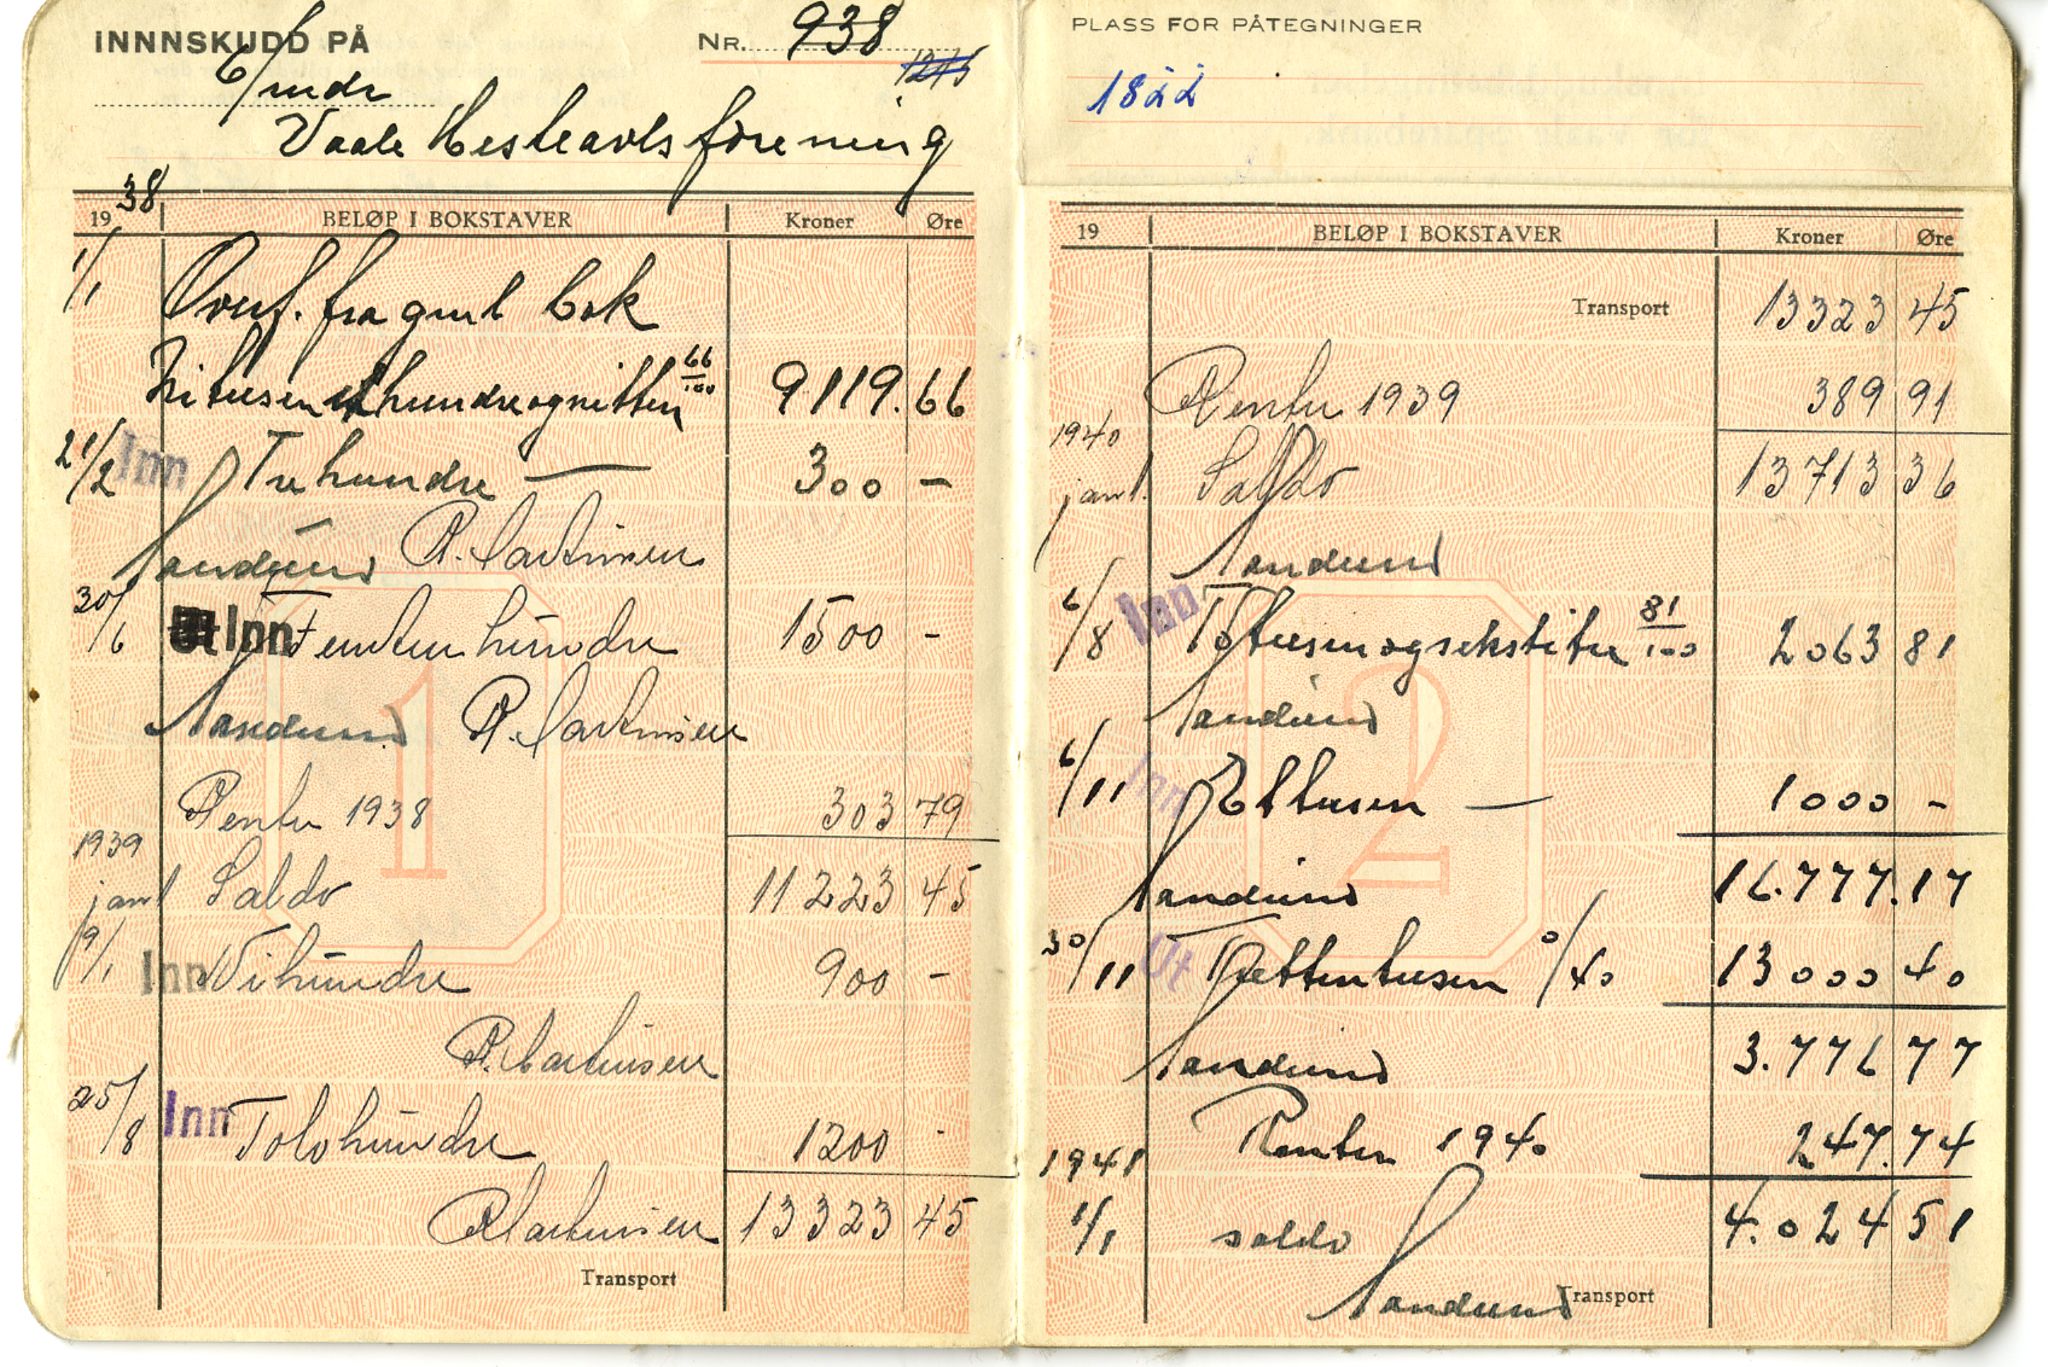 INNNSKUDD PÅ
6/mdr
NR. 938
1245
Vaale Hesteavlsforening
1938 BELØP I BOKSTAVER Kroner Øre
1/1 Overf. fra gml bok
Nitusenethundreognitten 66/100 9119.66
21/2 Inn Trehundre — 300 -
Sandsund R. Martinsen
30/6 Inn Femtenhundre 1500 -
Sandsund R. Martinsen
Renter 1938 303 79
1939
jan 1 Saldo 11223 45
9/1 Inn Nihundre 900 -
R. Martinsen
25/8 Inn Tolvhundre 1200 -
R Martinsen 13323 45
Transport
1
PLASS FOR PÅTEGNINGER
1822
19 BELØP I BOKSTAVER Kroner Øre
Transport 13323 45
Renter 1939 389 91
1940
jan 1. Saldo 13713 36
Sandsund
6/8 Inn Totusenogsekstitre 81/100 2063 81
Sandsund
6/11 Inn Ettusen — 1000 -
Sandsund 16.777.17
30/11 Ut Trettentusen 0/40 13000 40
Sandsund 3.776 77
Renter 1940 247.74
1941
1/1 saldo 4.024 51
Transport
Sandsund
2